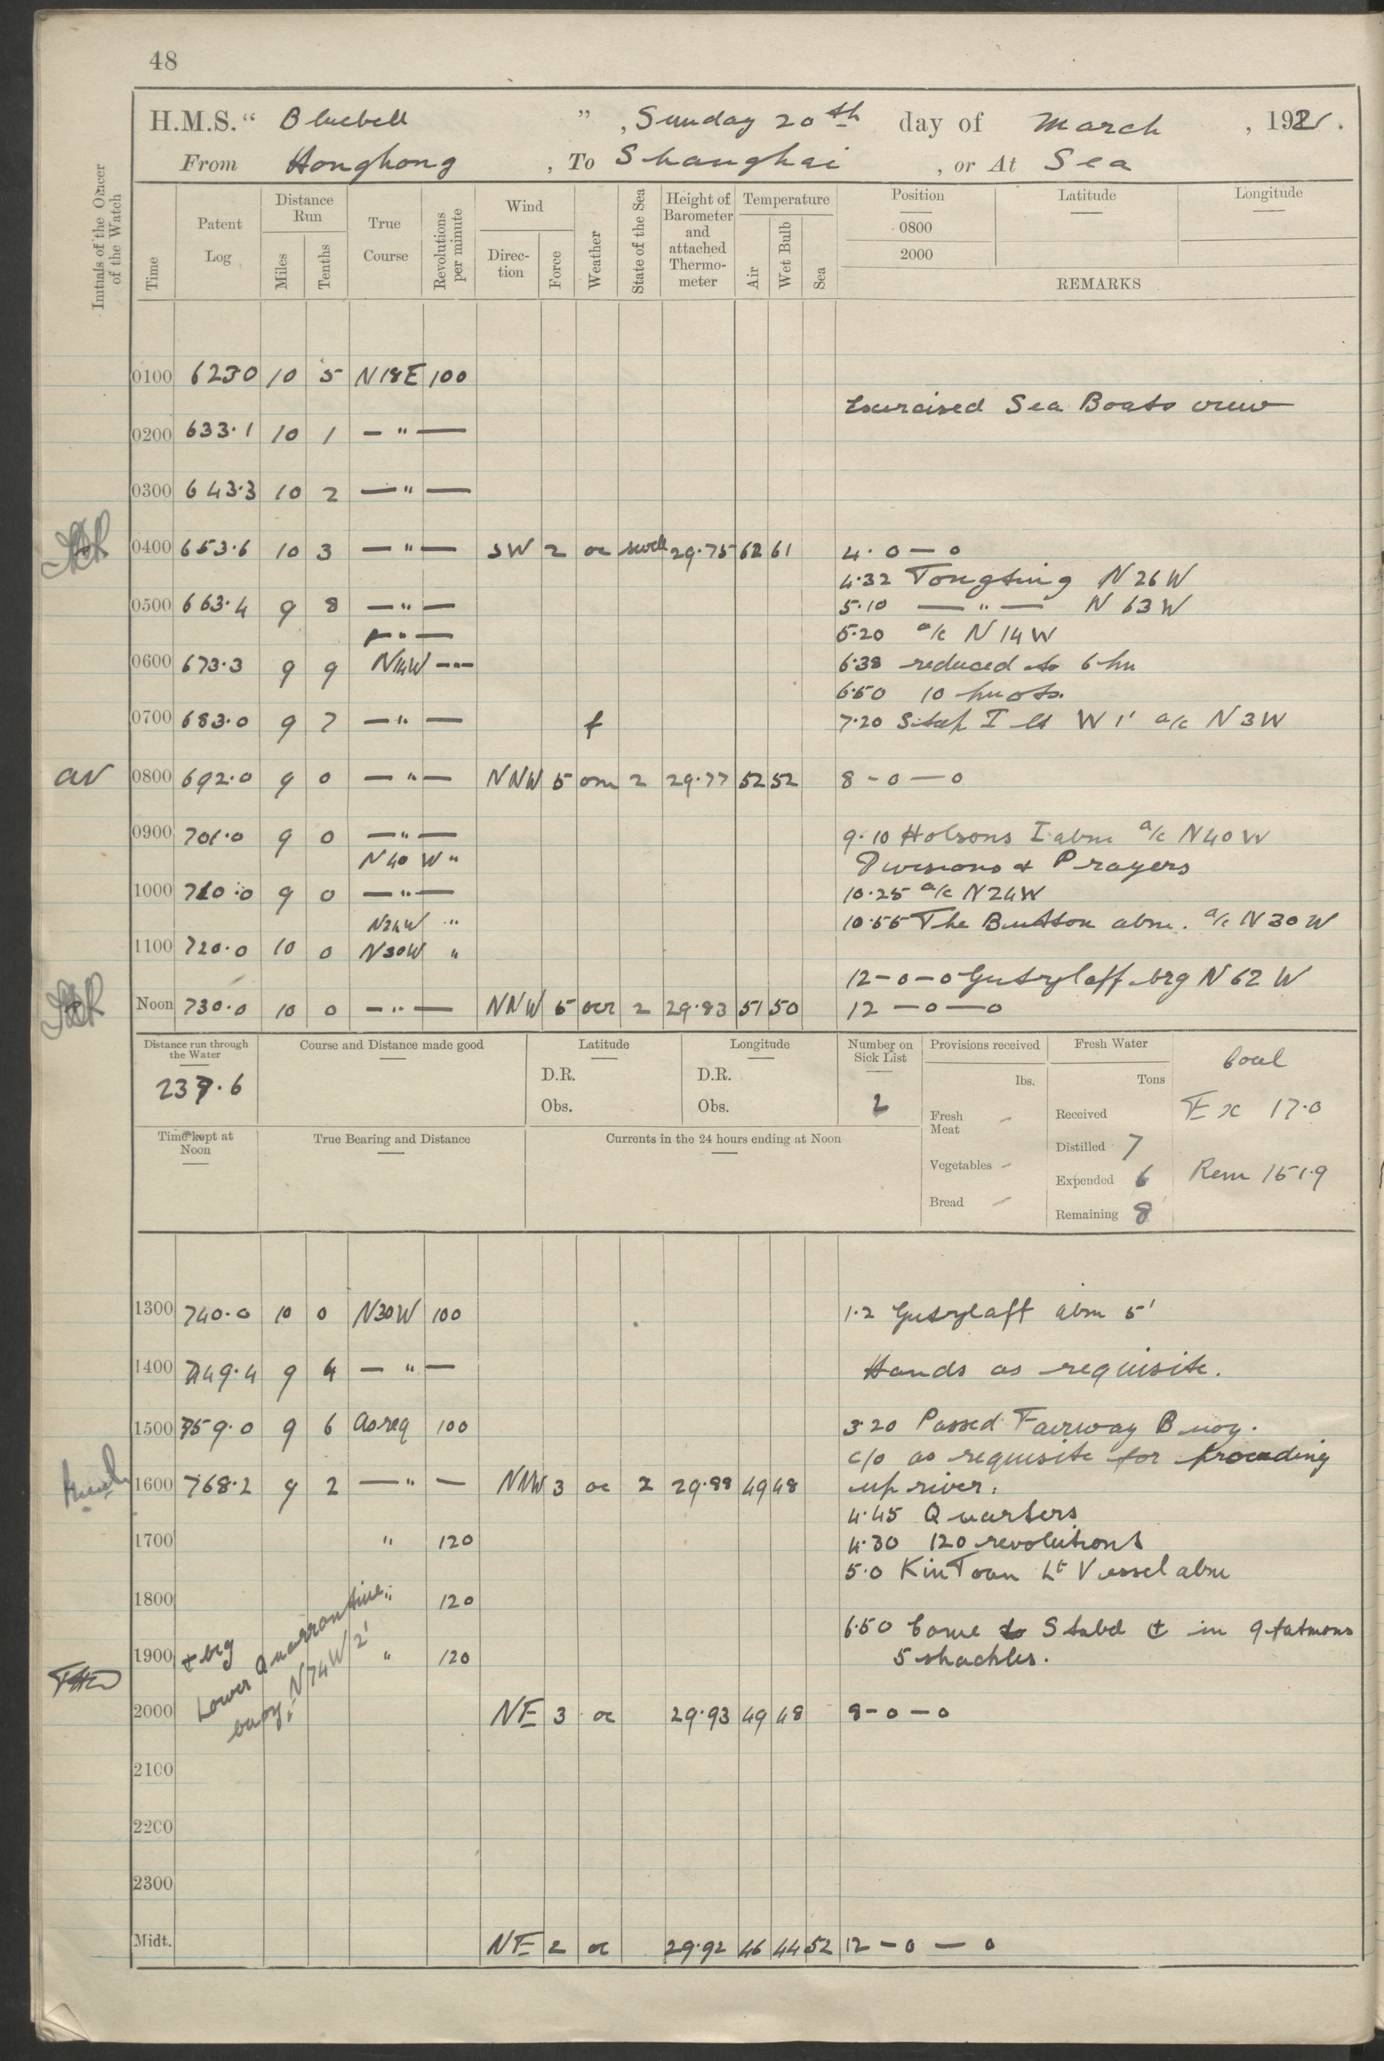 48
H.M.S. " Bluebell ", Sunday 20th day of March, 1921.
From Hongkong, To Shanghai, or At Sea
Initials of the Officer of the Watch
Time
Patent Log
Distance Run
Miles
Tenths
True Course
Revolutions per minute
Wind
Direction
Force
Weather
State of the Sea
Height of Barometer and attached Thermometer
Temperature
Air
Wet Bulb
Sea
Position
Latitude
Longitude
0800
2000
REMARKS
0100 623.0 10 5 N18E 100
Exercised Sea Boats crew
0200 633.1 10 1 — " —
0300 643.3 10 2 — " —
0400 653.6 10 3 — " — SW 2 oc swell 29.75 62 61 4.0—0
4.32 Tongting N26W
0500 663.4 9 8 — " — 5.10 — " — N63W
— " — 5.20 a/c N14W
0600 673.3 9 9 N14W — " — 6.38 reduced to 6 kn
6.50 10 knots.
0700 683.0 9 7 — " — f 7.20 Steep I lt W 1' a/c N3W
0800 692.0 9 0 — " — NNW 5 om 2 29.77 52 52 8-0—0
0900 701.0 9 0 — " — 9.10 Holsons I abm a/c N40W
N40W " Divisions & Prayers
1000 710.0 9 0 — " — 10.25 a/c N24W
N24W " 10.55 The Button abm. a/c N30W
1100 720.0 10 0 N30W "
12-0-0 Gutzlaff brg N62W
Noon 730.0 10 0 — " — NNW 5 ocr 2 29.83 51 50 12—0—0
Distance run through the Water
237.6
Course and Distance made good
Latitude
D.R.
Obs.
Longitude
D.R.
Obs.
Number on Sick List
2
Provisions received
lbs.
Fresh Meat -
Vegetables -
Bread -
Fresh Water
Tons
Received
Distilled 7
Expended 6
Remaining 8
Coal
Ex 17.0
Rem 151.9
Time kept at Noon
True Bearing and Distance
Currents in the 24 hours ending at Noon
1300 740.0 10 0 N30W 100 1.2 Gutzlaff abm 5'
1400 749.4 9 4 — " — Hands as requisite.
1500 759.0 9 6 As req 100 3.20 Passed Fairway Buoy.
c/o as requisite for proceeding
1600 768.2 9 2 — " — NNW 3 oc 2 29.89 49 48 up river.
4.45 Quarters
1700 " 120 4.30 120 revolutions
5.0 KinToan Lt Vessel abm
1800 " 120
6.50 Came to Stabd ⚓ in 9 fatmons
1900 " 120 5 shackles.
⚓ brg
Lower Quarrantine
buoy, N74W 2'
2000 NE 3 oc 29.93 49 48 8-0-0
2100
2200
2300
Midt. NE 2 oc 29.92 46 44 52 12-0—0